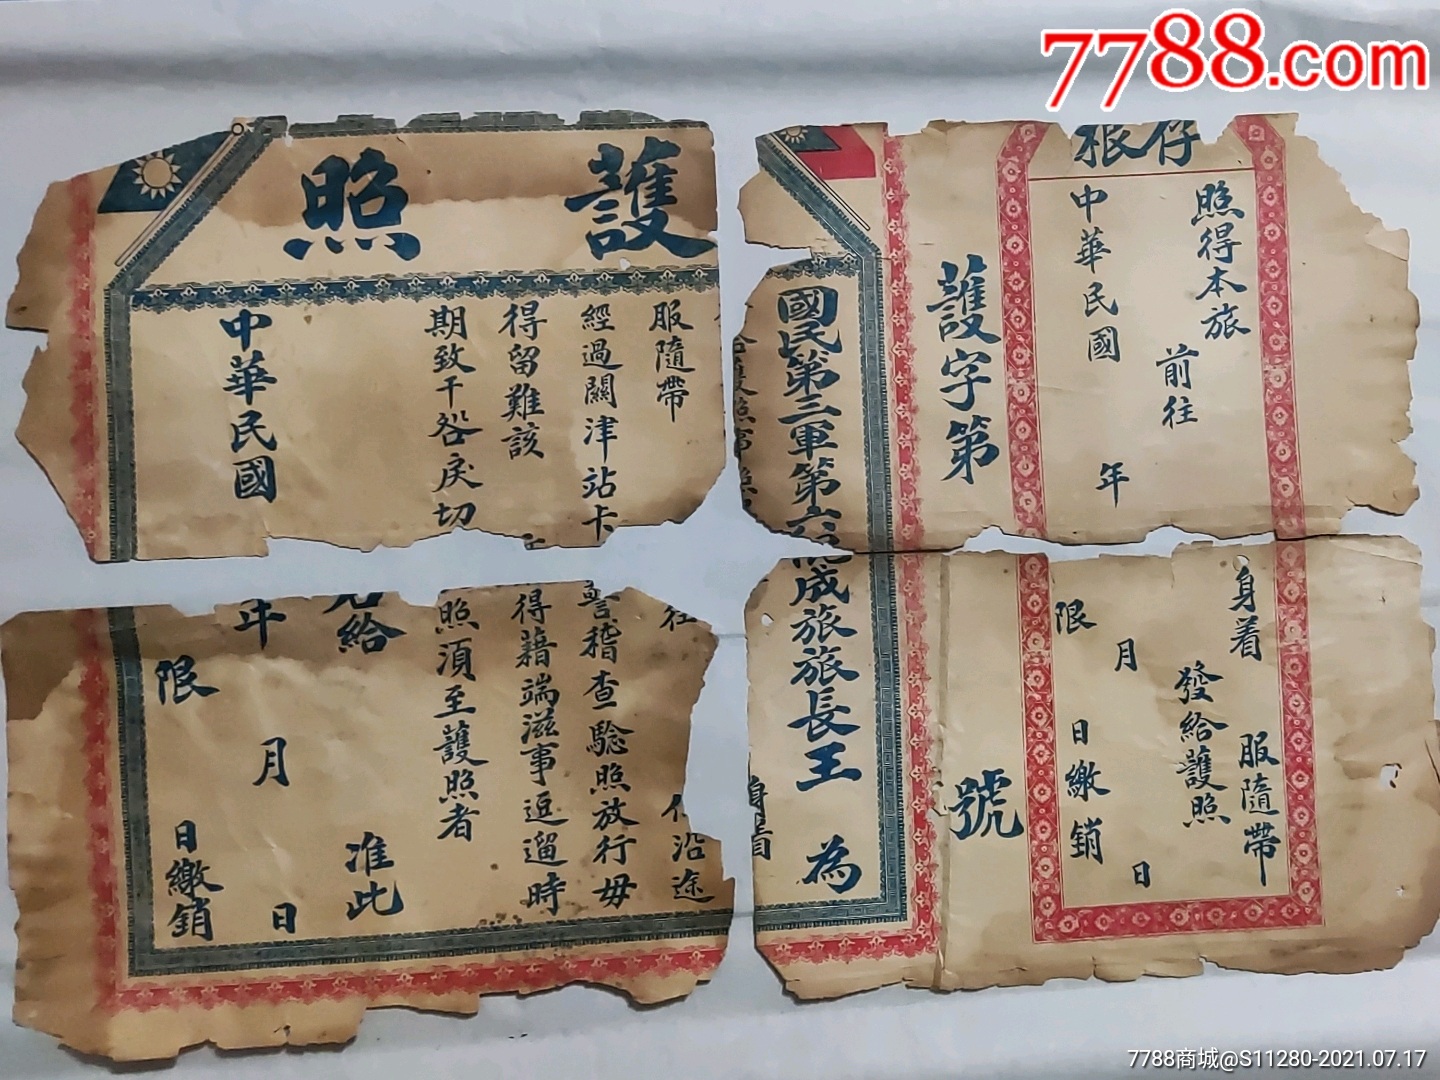 7788.com
存根
照得本旅
前往
身着
服隨帶
發給護照
中華民國
年
月
日
限
日繳銷
護字第
號
護照
國民第三軍第六
成旅旅長王
為
身着
服隨帶
沿途
經過關津站卡
警稽查驗照放行毋
得留難該
得藉端滋事逗遛時
期致干咎戾切
照須至護照者
給
准此
中華民國
年
月
日
限
日繳銷
7788商城@S11280-2021.07.17